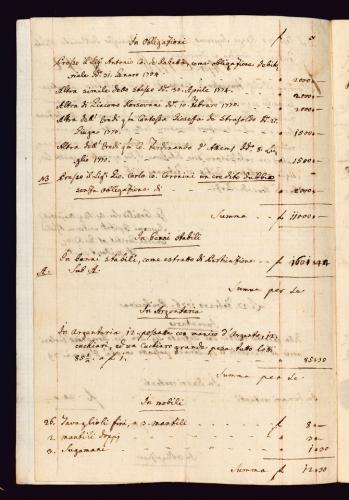 In Obligazioni f
Presso il Sigr Antonio Co: de Rabatta, come obligazione debito
riale ddo 31. Genaro 1774 2000 „ —
Altra simile dello stesso ddo 30. Aprile 1774. 2000 „ —
Altra di Giacomo ddo 10. Febraro 1770. 2000 „ —
Altra dell' Eredi qm Contessa Gioseffa di Strasoldo ddo 27.
Giugno 1770. 1500 „ —
Altra dell' Eredi qm Co: Ferdinando d' Attems ddo 8. Lu
glio 1770. 1500 „ —
NB Presso il Sigr Gio: Carlo Co: Coronini un credito dubbio
senza obligazione di 2000 „ —
Summa f 11000 „ —
In beni stabili
In beni stabili, come estratto di
A. Sub A. f 1601
Summa per se
In Argentaria
In Argentaria 12. possate con manico d' Argento, 12.
cuchiari, ed un cuchiaro grande pesa tutto lotti
85½. a f 1. 85 „ 30
Summa per se
In mobili
26. Tavaglioli fini, e 3. mantili f 8 „ —
2. mantili doppi 3 „ —
3. Sugamani 1 „ 30
Summa f 12 „ 30